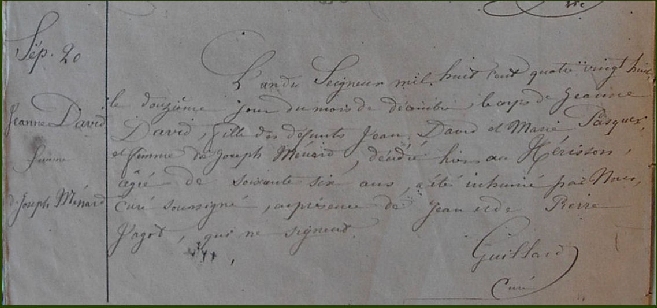 Sép. 20
Jeanne David
femme
d. Joseph Ménard
L'an du Seigneur mil huit cent quatre vingt huit,
le douzième jour du mois de décembre, le corps de Jeanne
David, fille des défunts Jean David et Marie Pasquer,
et femme de Joseph Ménard, décédée hier au Hérisson,
âgée de soixante six ans, a été inhumé par Nous,
Curé soussigné, en présence de Jean et de Pierre
Jagot, qui ne signent.
Guillard
Curé